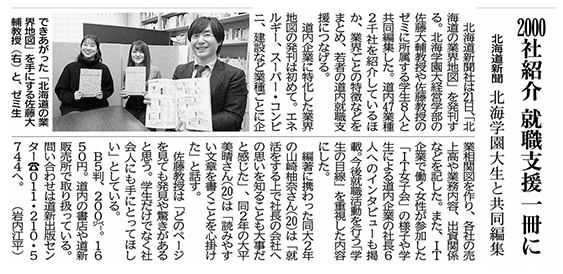 2000社紹介 就職支援一冊に
北海道新聞 北海学園大生と共同編集
北海道新聞社は21日、「北
海道の業界地図」を発刊す
る。北海学園大経営学部の
佐藤大輔教授や佐藤教授の
ゼミに所属する学生8人と
共同編集した。道内47業種
2千社を紹介しているほ
か、業界ごとの特徴などを
まとめ、若者の道内就職支
援につなげる。
道内企業に特化した業界
地図の発刊は初めて。エネ
ルギー、スーパー・コンビ
ニ、建設など業種ごとに企
業相関図を作り、各社の売
上高や業務内容、出資関係
などを記した。また、IT
企業で働く女性が参加した
「IT女子会」の様子や学
生による道内企業の社長6
人へのインタビューも掲
載。今後就職活動を行う「学
生の目線」を重視した内容
にした。
編著に携わった同大2年
の山崎柚奈さん(20)は「就
活をする上で社長の会社へ
の思いを知ることも大事だ
と感じた」、同2年の大平
美晴さん(20)は「読みやす
い文章を書くことを心掛け
た」と話す。
佐藤教授は「どのページ
を見ても発見や驚きがある
と思う。学生だけでなく社
会人にも手にとってほし
い」としている。
B5判、200㌻。16
50円。道内の書店や道新
販売所で取り扱っている。
問い合わせは道新出版セン
ター☎011・210・5
744へ。 (岩内江平)
できあがった「北海道の業
界地図」を手にする佐藤大
輔教授(右)と、ゼミ生